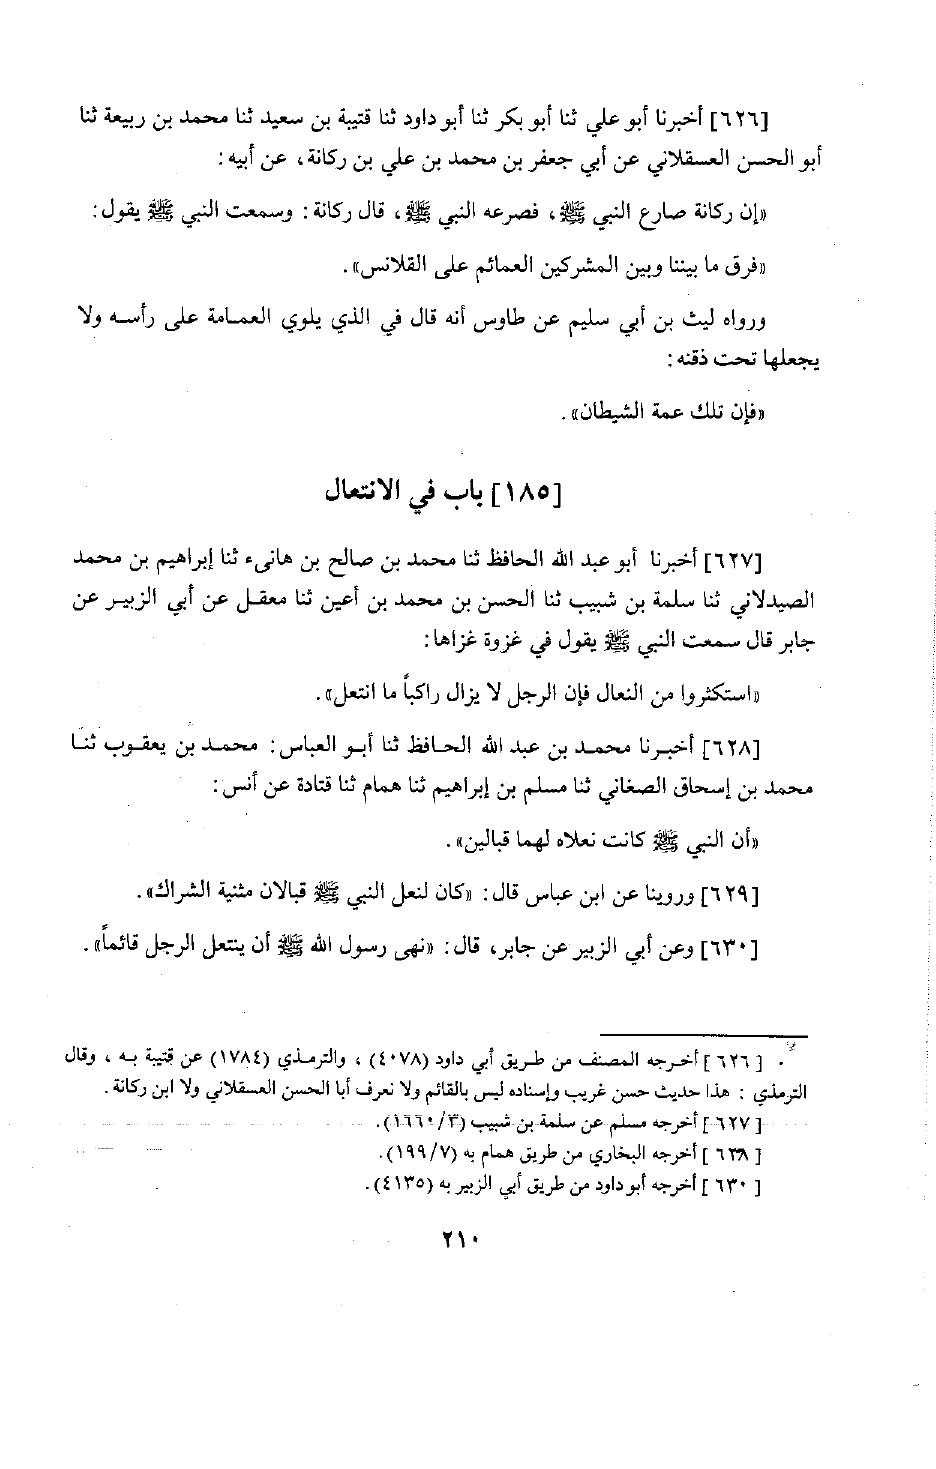 [٦٢٦] أخبرنا أبو علي ثنا أبو بكر ثنا أبو داود ثنا قتيبة بن سعيد ثنا محمد بن ربيعة ثنا
أبو الحسن العسقلاني عن أبي جعفر بن محمد بن علي بن ركانة، عن أبيه:
«إن ركانة صارع النبي ﷺ، فصرعه النبي ﷺ، قال ركانة: وسمعت النبي ﷺ يقول:
«فرق ما بيننا وبين المشركين العمائم على القلانس».
ورواه ليث بن أبي سليم عن طاوس أنه قال في الذي يلوي العمامة على رأسه ولا
يجعلها تحت ذقنه:
«فإن تلك عمة الشيطان».
[١٨٥] باب في الانتعال
[٦٢٧] أخبرنا أبو عبد الله الحافظ ثنا محمد بن صالح بن هانىء ثنا إبراهيم بن محمد
الصيدلاني ثنا سلمة بن شبيب ثنا الحسن بن محمد بن أعين ثنا معقل عن أبي الزبير عن
جابر قال سمعت النبي ﷺ يقول في غزوة غزاها:
«استكثروا من النعال فإن الرجل لا يزال راكباً ما انتعل».
[٦٢٨] أخبرنا محمد بن عبد الله الحافظ ثنا أبو العباس: محمد بن يعقوب ثنا
محمد بن إسحاق الصغاني ثنا مسلم بن إبراهيم ثنا همام ثنا قتادة عن أنس:
«أن النبي ﷺ كانت نعلاه لهما قبالين».
[٦٢٩] وروينا عن ابن عباس قال: «كان لنعل النبي ﷺ قبالان مثنية الشراك».
[٦٣٠] وعن أبي الزبير عن جابر، قال: «نهى رسول الله ﷺ أن ينتعل الرجل قائماً».
[٦٢٦] أخرجه المصنف من طريق أبي داود (٤٠٧٨)، والترمذي (١٧٨٤) عن قتيبة به، وقال
الترمذي: هذا حديث حسن غريب وإسناده ليس بالقائم ولا نعرف أبا الحسن العسقلاني ولا ابن ركانة.
[٦٢٧] أخرجه مسلم عن سلمة بن شبيب (١٦٦٠/٣).
[٦٢٨] أخرجه البخاري من طريق همام به (١٩٩/٧).
[٦٣٠] أخرجه أبو داود من طريق أبي الزبير به (٤١٣٥).
٢١٠